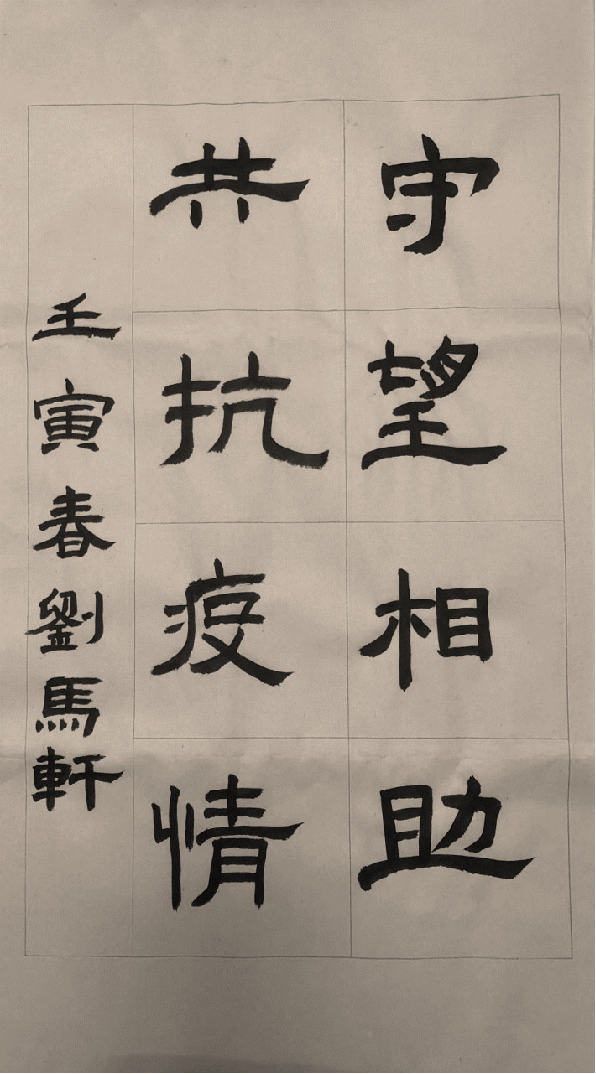 守望相助
共抗疫情
壬寅春劉馬軒